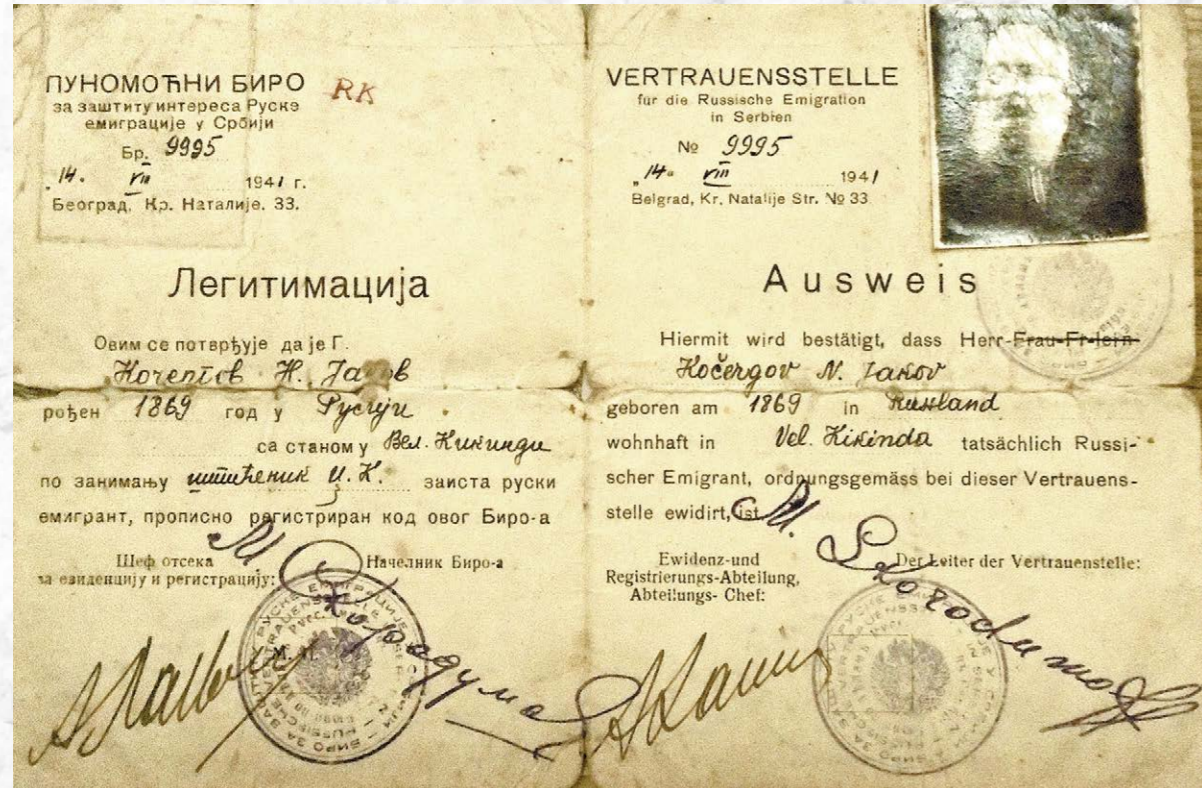 ПУНОМОЋНИ БИРО
за заштиту интереса Руске
емиграције у Србији
RK
Бр. 9995
„14. VIII 1941 г.
Београд, Кр. Наталије. 33.
Легитимација
Овим се потврђује да је Г.
Н. Јаков
рођен 1869 год у Русији
са станом у Вел. Кикинди
по занимању штићеник И. К. заиста руски
емигрант, прописно регистриран код овог Биро-а
Шеф отсека
за евиденцију и регистрацију:
Начелник Биро-а
VERTRAUENSSTELLE
für die Russische Emigration
in Serbien
No 9995
„14. VIII 1941
Belgrad, Kr. Natalije Str. No 33
Ausweis
Hiermit wird bestätigt, dass Herr-Frau-Fr-lein
Kočergov N. Jakov
geboren am 1869 in Russland
wohnhaft in Vel. Kikinda tatsächlich Russi-
scher Emigrant, ordnungsgemäss bei dieser Vertrauens-
stelle ewidirt, ist
Ewidenz-und
Registrierungs-Abteilung,
Abteilungs- Chef:
Der Leiter der Vertrauenstelle:
M. Skorodumoff